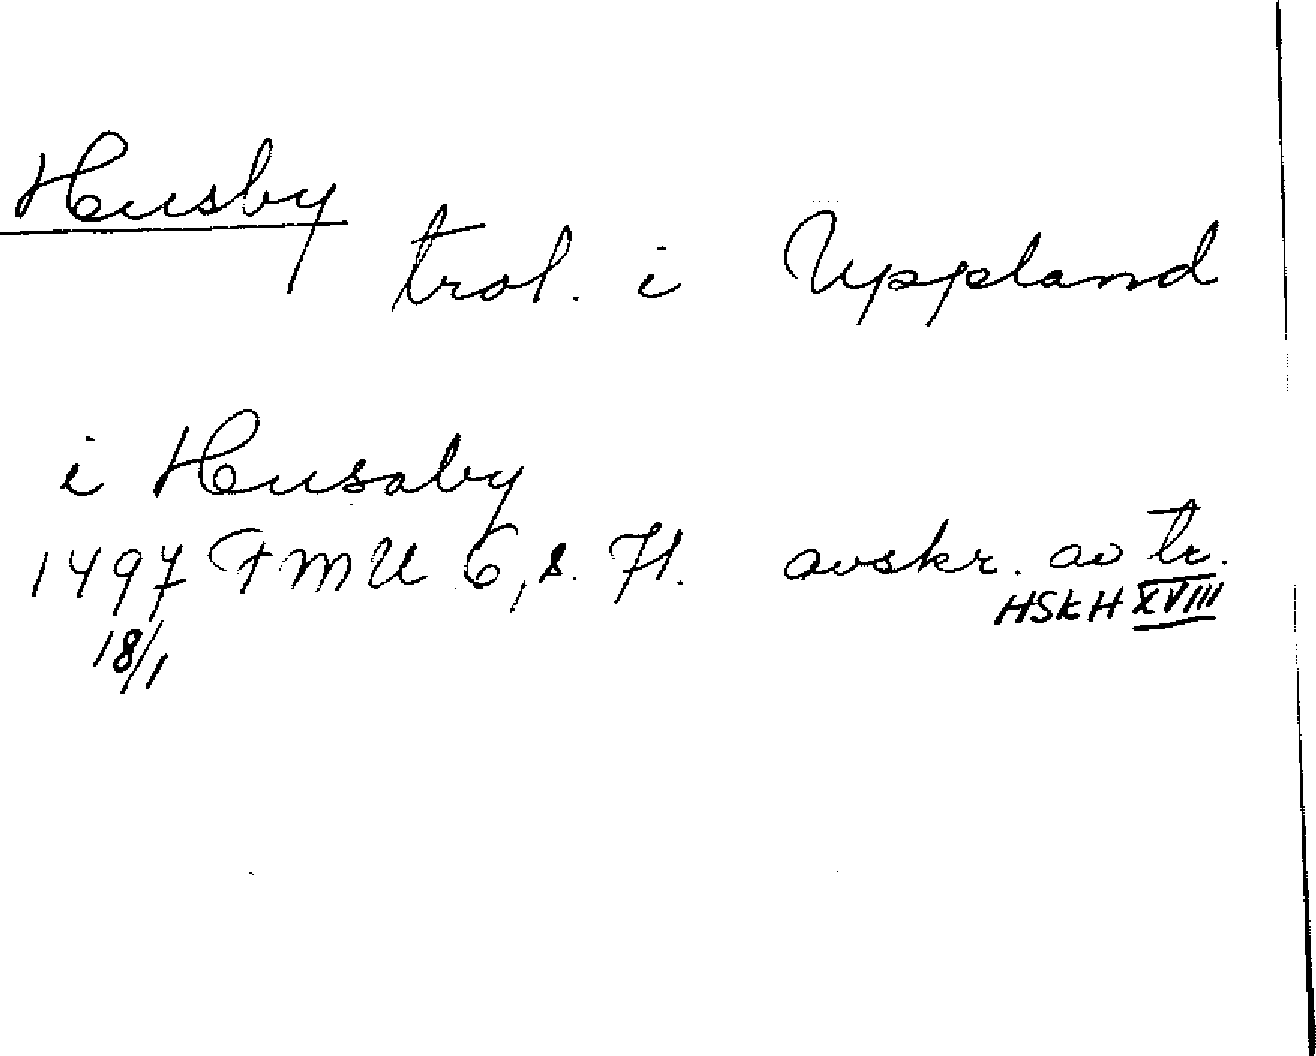 Husby
trol. i Uppland
i Husaby
1497 FMU 6, s. 71. avskr. av tr.
HSkH XVIII
18/1